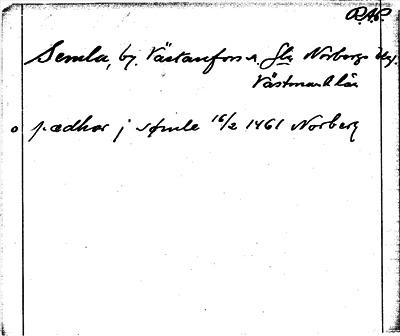 Semla, by. Västanfors s. Gla Norbergs
Västmanl. län
pædhar j sømle 16/2 1461 Norberg